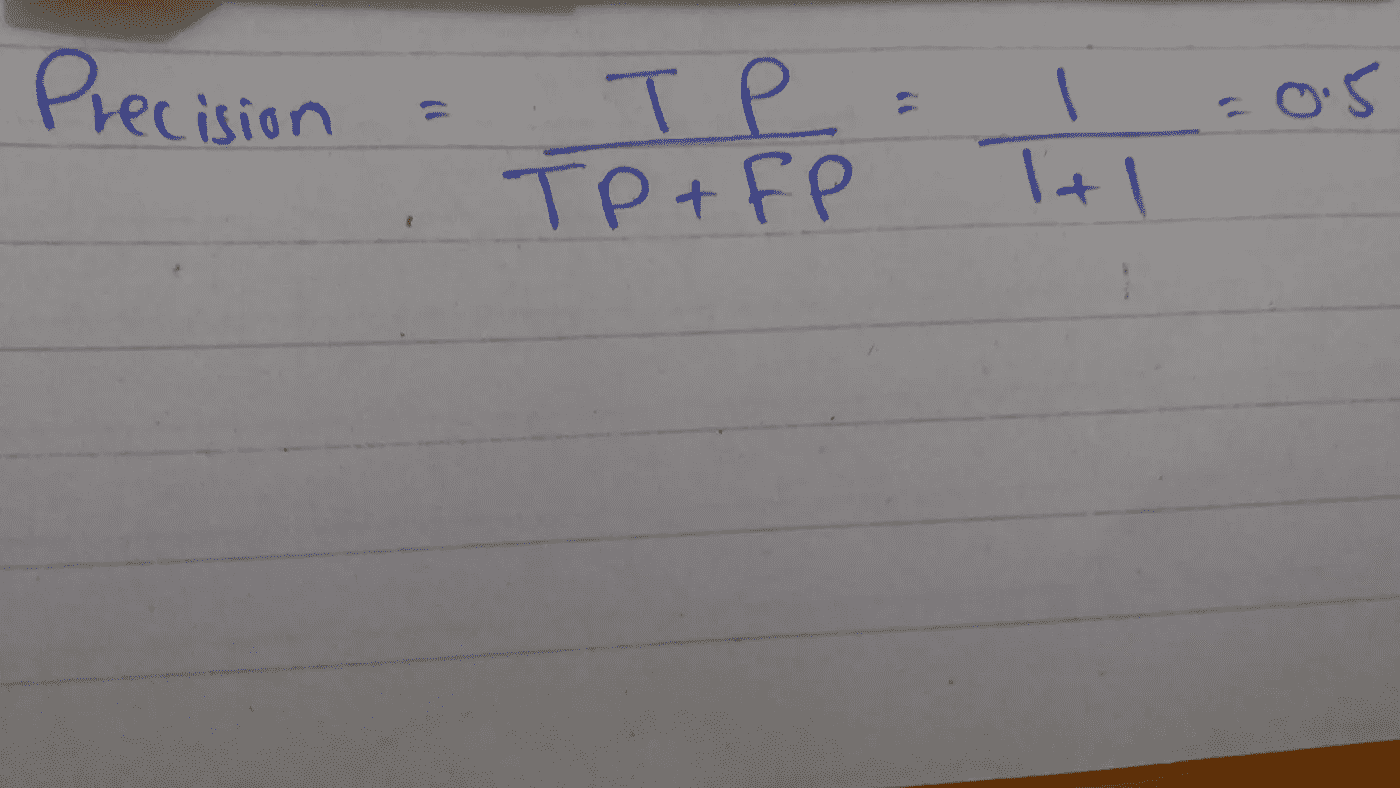 Precision = TP / TP + FP = 1 / 1 + 1 = 0.5